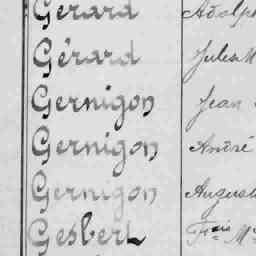 Gérard Adolph
Gérard Jules M
Gernigon Jean
Gernigon André
Gernigon Auguste
Gesbert Fçois M